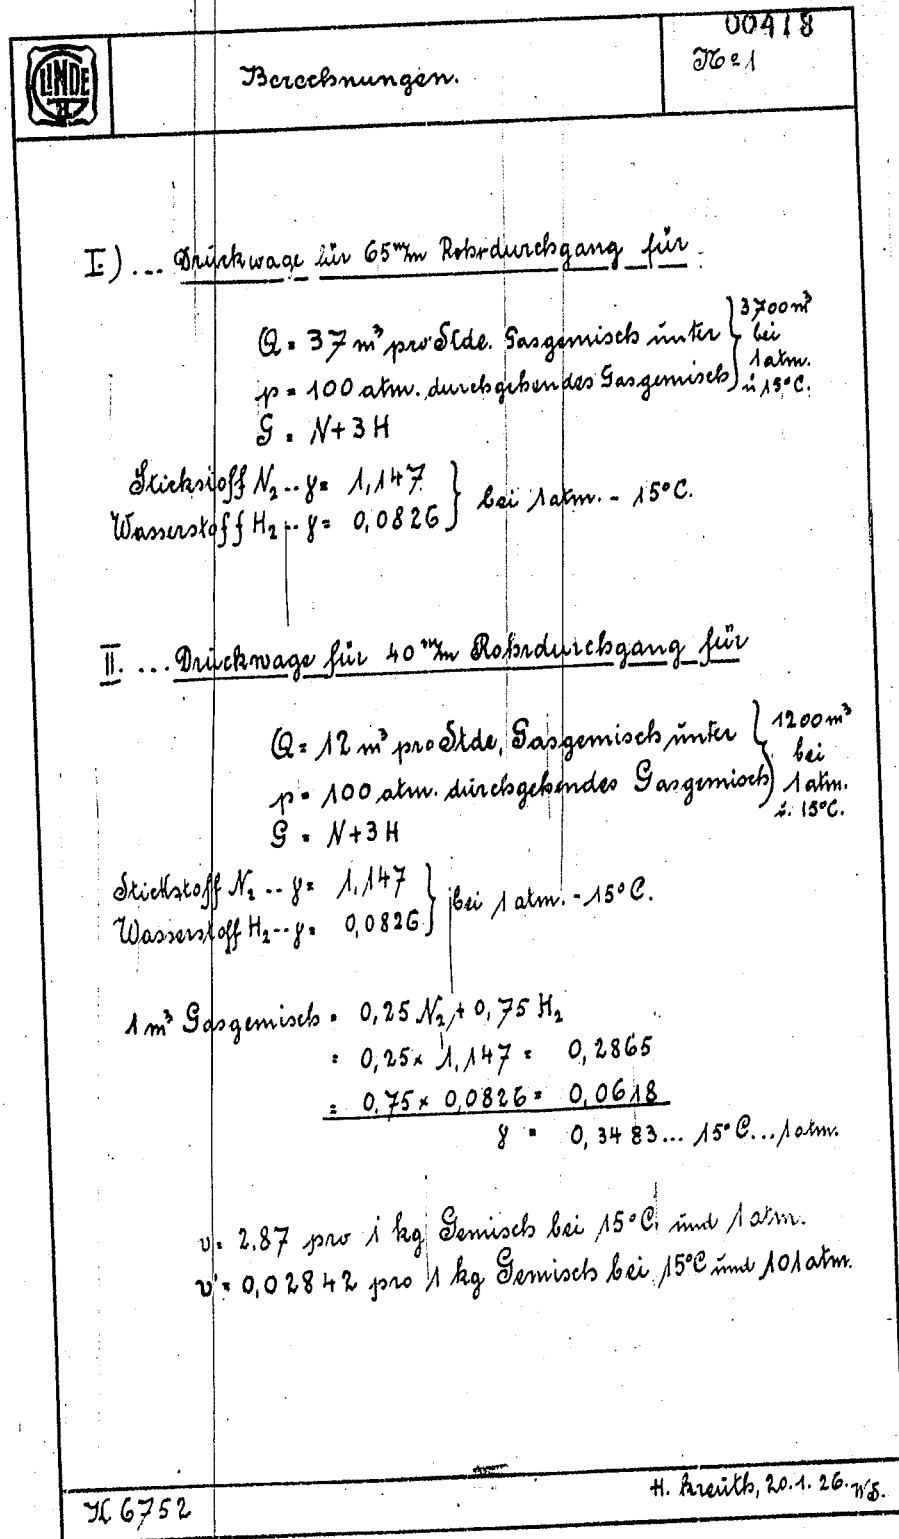 00418
LINDE
Berechnungen.
No 1
I.) ... Drückwage für 65 m/m Rohrdurchgang für
Q = 37 m³ pro Stde. Gasgemisch ünter } 3700 m³
bei
p = 100 atm. durchgehendes Gasgemisch } 1 atm.
ü 15°C.
G = N+3H
Stickstoff N₂ .. γ = 1,147 } bei 1 atm. - 15°C.
Wasserstoff H₂ .. γ = 0,0826
II. ... Drückwage für 40 m/m Rohrdurchgang für
Q = 12 m³ pro Stde, Gasgemisch ünter } 1200 m³
bei
p = 100 atm. dürchgehendes Gasgemisch } 1 atm.
ü. 15°C.
G = N+3H
Stickstoff N₂ .. γ = 1,147 } bei 1 atm. - 15°C.
Wasserstoff H₂ .. γ = 0,0826
1 m³ Gasgemisch = 0,25 N₂ + 0,75 H₂
= 0,25 × 1,147 = 0,2865
= 0,75 × 0,0826 = 0,0618
γ = 0,3483 ... 15°C ... 1 atm.
v = 2.87 pro 1 kg Gemisch bei 15°C. ünd 1 atm.
v' = 0,02842 pro 1 kg Gemisch bei 15°C ünd 101 atm.
K 6752
H. Kreüth, 20.1.26. WS.